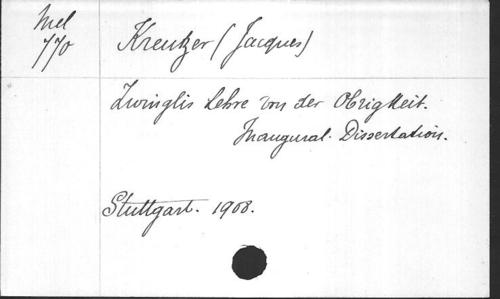 Mel
770
Kreutzer (Jacques)
Zwinglis Lehre von der Obrigkeit.
Inaugural-Dissertation.
Stuttgart. 1908.